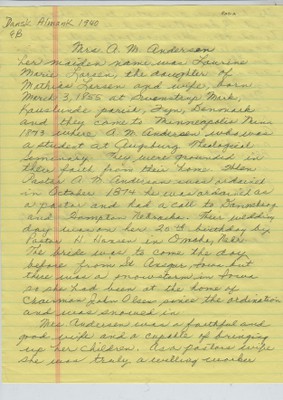 Dansk Almanak 1940
GB
Mrs A. M. Anderson
her maiden name was Laurene
Marie Larsen, the daughter of
Mathias Larsen and wife, born
March 3, 1855 at Mark,
parish, Denmark
and they came to Minneapolis Minn
1873 where A. M. Andersen who was
a student at Augsburg Theological
Seminary. They were grounded in
their faith from their home. When
Pastor A. M. Anderson was ordained
in October 1874 he was ordained as
a pastor and had a call to Dannebrog
and Nebraska. Their wedding
day was on her 20th birthday by
Pastor H. Hansen in Omaha, Nebr
The bride was to come the day
before from St Ansgar, Iowa but
there was a snowstorm in Iowa
so she had been at the home of
Chairman John Olsen since the ordination
and was snowed in
Mrs. Anderson was a faithful and
good wife and a capable of bringing
up her children. As a pastors wife
she was truly a willing worker